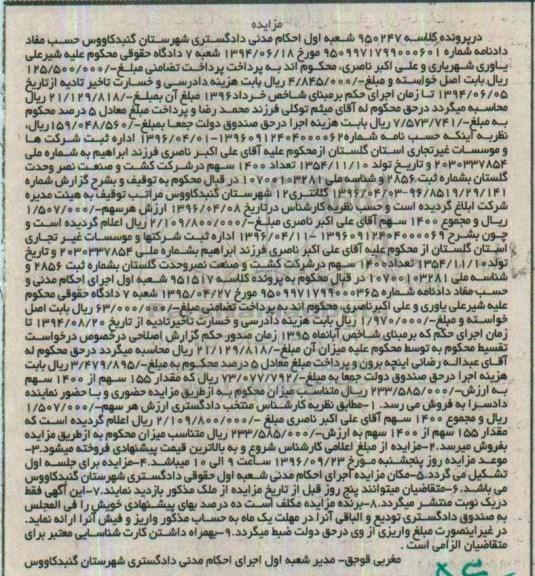 مزایده
درپرونده کلاسه ۹۵۰۲۴۷ شعبه اول احکام مدنی دادگستری شهرستان گنبدکاووس حسب مفاد
دادنامه شماره ۹۵۰۹۹۷۱۷۹۹۰۰۰۶۰۱ مورخ ۱۳۹۴/۰۶/۱۸ شعبه ۷ دادگاه حقوقی محکوم علیه شیرعلی
یاوری شهریاری و علی اکبر ناصری، محکوم اند به پرداخت پرداخت تضامنی مبلغ-/۱۲۵/۵۰۰/۰۰۰
ریال بابت اصل خواسته و مبلغ-/۴/۸۴۵/۰۰۰ ریال بابت هزینه دادرسی و خسارت تاخیر تادیه ازتاریخ
۱۳۹۴/۰۶/۰۵ تا زمان اجرای حکم برمبنای شاخص خرداد۱۳۹۶ آن بمبلغ-/۲۱/۱۲۹/۸۱۸ ریال
محاسبه میگردد درحق محکوم له آقای میثم توکلی فرزند محمد رضا و پرداخت مبلغ معادل ۵ درصد محکوم
به مبلغ-/۷/۵۷۳/۷۴۱ ریال بابت هزینه اجرا درحق صندوق دولت جمعا بمبلغ-/۱۵۹/۰۴۸/۵۶۰ریال،
نظربه اینکه حسب نامه شماره۱۳۹۶۰۹۱۲۴۰۴۰۰۰۰۶۲-۱۳۹۶/۰۴/۰۱ اداره ثبت شرکت ها
و موسسات غیرتجاری استان گلستان ازمحکوم علیه آقای علی اکبر ناصری فرزند ابراهیم به شماره ملی
۲۰۳۰۳۳۷۸۵۴ و تاریخ تولد ۱۳۵۴/۱۱/۱۰ تعداد ۱۴۰۰ سهم درشرکت کشت و صنعت نصر وحدت
گلستان بشماره ثبت ۲۸۵۶ و شناسه ملی ۱۰۷۰۰۱۰۳۲۸۱ در قبال محکوم به توقیف و بشرح گزارش شماره
۹۶/۸۵۱۹/۲۹/۱۴۱-۱۳۹۶/۰۴/۰۳ کلانتری ۱۲ شهرستان گنبدکاووس مراتب توقیف به هیئت مدیره
شرکت ابلاغ گردیده است و حسب نظریه کارشناس درتاریخ ۱۳۹۶/۰۴/۰۸ ارزش هرسهم-/۱/۵۰۷/۰۰۰
ریال و مجموع ۱۴۰۰ سهم آقای علی اکبر ناصری مبلغ-/۲/۱۰۹/۸۰۰/۰۰۰ ریال اعلام گردیده است و
چون بشرح ۱۳۹۶۰۹۱۲۴۰۴۰۰۰۰۶۹-۱۳۹۶/۰۴/۱۱ اداره ثبت شرکتها و موسسات غیر تجاری
استان گلستان از محکوم علیه آقای علی اکبر ناصری فرزند ابراهیم بشماره ملی ۲۰۳۰۳۳۷۸۵۴ وتاریخ
تولد۱۳۵۴/۱۱/۱۰ تعداد۱۴۰۰ سهم درشرکت کشت و صنعت نصروحدت گلستان بشماره ثبت ۲۸۵۶ و
شناسه ملی ۱۰۷۰۰۱۰۳۲۸۱ در قبال محکوم به پرونده کلاسه ۹۵۱۵۱۷ شعبه اول اجرای احکام مدنی و
حسب مفاد دادنامه شماره ۹۵۰۹۹۷۱۷۹۹۰۰۰۳۶۵ مورخ ۱۳۹۵/۰۴/۲۷ شعبه ۷ دادگاه حقوقی محکوم
علیه شیرعلی یاوری و علی اکبرناصری، محکوم اند به پرداخت تضامنی مبلغ-/۶۳/۰۰۰/۰۰۰ ریال بابت اصل
خواسته و مبلغ-/۱/۹۷۰/۰۰۰ ریال بابت هزینه دادرسی و خسارت تأخیرتادیه از تاریخ ۱۳۹۴/۰۸/۲۰ تا
زمان اجرای حکم که برمبنای شاخص آبانماه ۱۳۹۵ زمان صدور حکم گزارش اصلاحی درخصوص درخواست
تقسیط محکوم به توسط محکوم علیه میزان آن مبلغ-/۲۱/۱۲۹/۸۱۸ ریال محاسبه میگردد درحق محکوم له
آقای عبداله رضائی اینچه برون و پرداخت مبلغ معادل ۵ درصد محکوم به مبلغ-/۳/۴۷۹/۸۹۵ ریال بابت
هزینه اجرا درحق صندوق دولت جمعا به مبلغ-/۷۳/۰۷۷/۷۹۲ ریال که مقدار ۱۵۵ سهم از ۱۴۰۰ سهم
به ارزش-/۲۳۳/۵۸۵/۰۰۰ ریال متناسب میزان محکوم به ازطریق مزایده حضوری و با حضور نماینده
دادسرا به فروش می رسد. ۱-مطابق نظریه کارشناس منتخب دادگستری ارزش هر سهم-/۱/۵۰۷/۰۰۰
ریال و مجموع ۱۴۰۰ سهم آقای علی اکبر ناصری مبلغ -/۲/۱۰۹/۸۰۰/۰۰۰ ریال اعلام گردیده است که
مقدار ۱۵۵ سهم از ۱۴۰۰ سهم به ارزش-/۲۳۳/۵۸۵/۰۰۰ ریال متناسب میزان محکوم به ازطریق مزایده
بفروش میرسد.۲-مزایده از مبلغ اعلامی کارشناس شروع و به بالاترین قیمت پیشنهادی فروخته میشود.۳-
موعد مزایده روز پنجشنبه مورخ ۱۳۹۶/۰۹/۲۳ ساعت ۹ الی ۱۰ میباشد.۴-مزایده برای جلسه اول
تشکیل می گردد.۵-مکان مزایده اجرای احکام مدنی شعبه اول حقوقی دادگستری شهرستان گنبدکاووس
می باشد.۶-متقاضیان میتوانند پنج روز قبل از تاریخ مزایده از ملک مذکور بازدید نمایند.۷-این آگهی فقط
دریک نوبت منتشر میگردد.۸-برنده مزایده مکلف است ده درصد بهای پیشنهادی خویش را فی المجلس
به صندوق دادگستری تودیع و الباقی آنرا در مهلت یک ماه به حساب مذکور واریز و فیش آنرا ارائه نماید.
در غیراینصورت مبلغ واریزی از وی درحق دولت ضبط میگردد.۹-بهمراه داشتن کارت شناسایی معتبر برای
متقاضیان الزامی است .
مغربی قوجق- مدیر شعبه اول اجرای احکام مدنی دادگستری شهرستان گنبدکاووس